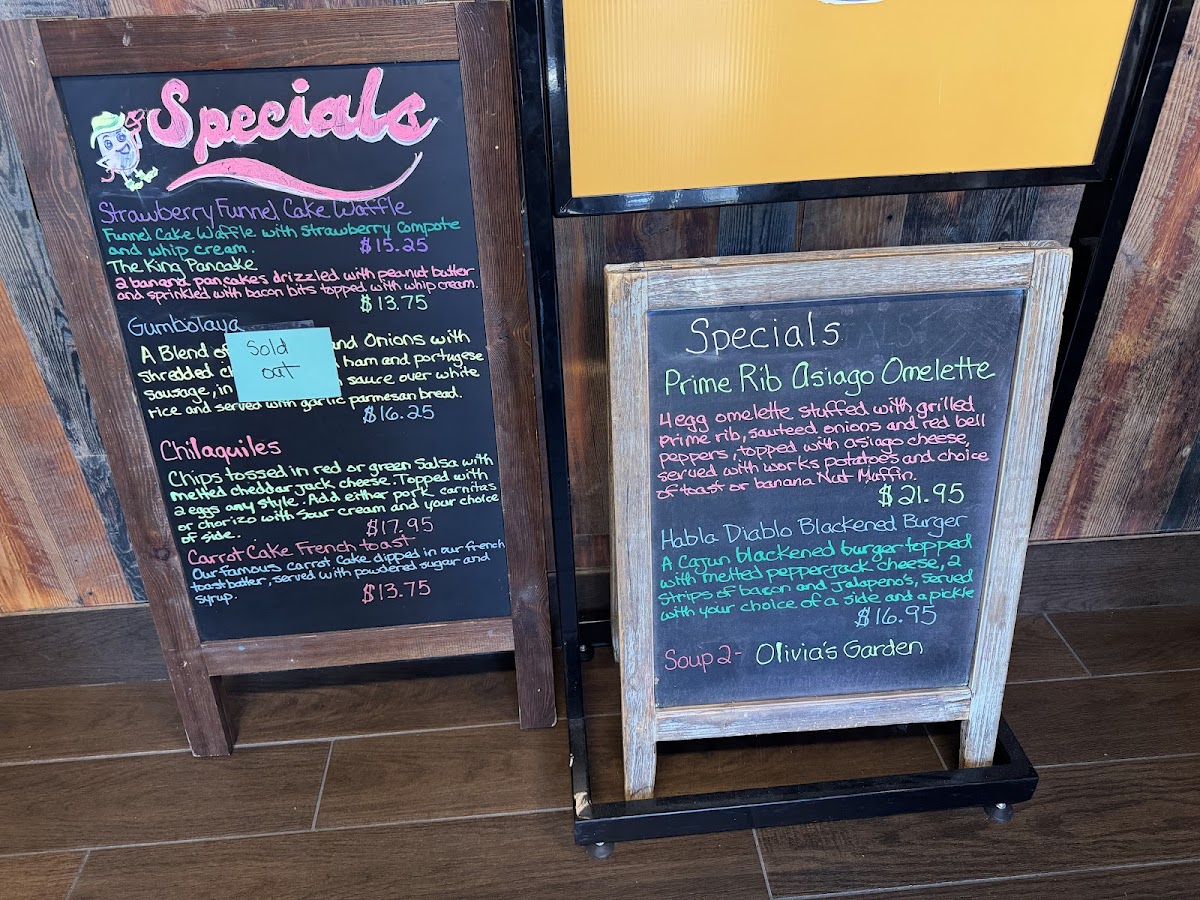 Specials
Strawberry Funnel Cake Waffle
Funnel Cake Waffle with strawberry compote
and whip cream. $15.25
The King Pancake
2 banana pancakes drizzled with peanut butter
and sprinkled with bacon bits topped with whip cream.
$13.75
Gumbolaya
A Blend of and Onions with
shredded ham and portugese
sausage, in sauce over white
rice and served with garlic parmesan bread.
$16.25
Sold
out
Chilaquiles
Chips tossed in red or green Salsa with
melted cheddar jack cheese. Topped with
2 eggs any style. Add either pork carnitas
or chorizo with sour cream and your choice
of side. $17.95
Carrot Cake French toast
Our famous carrot cake dipped in our french
toast batter, served with powdered sugar and
syrup. $13.75
Specials
Prime Rib Asiago Omelette
4 egg omelette stuffed with grilled
prime rib, sauteed onions and red bell
peppers, topped with asiago cheese,
served with works potatoes and choice
of toast or banana Nut Muffin.
$21.95
Habla Diablo Blackened Burger
A Cajun blackened burger topped
with melted pepperjack cheese, 2
strips of bacon and jalapeno's, served
with your choice of a side and a pickle
$16.95
Soup 2- Olivia's Garden